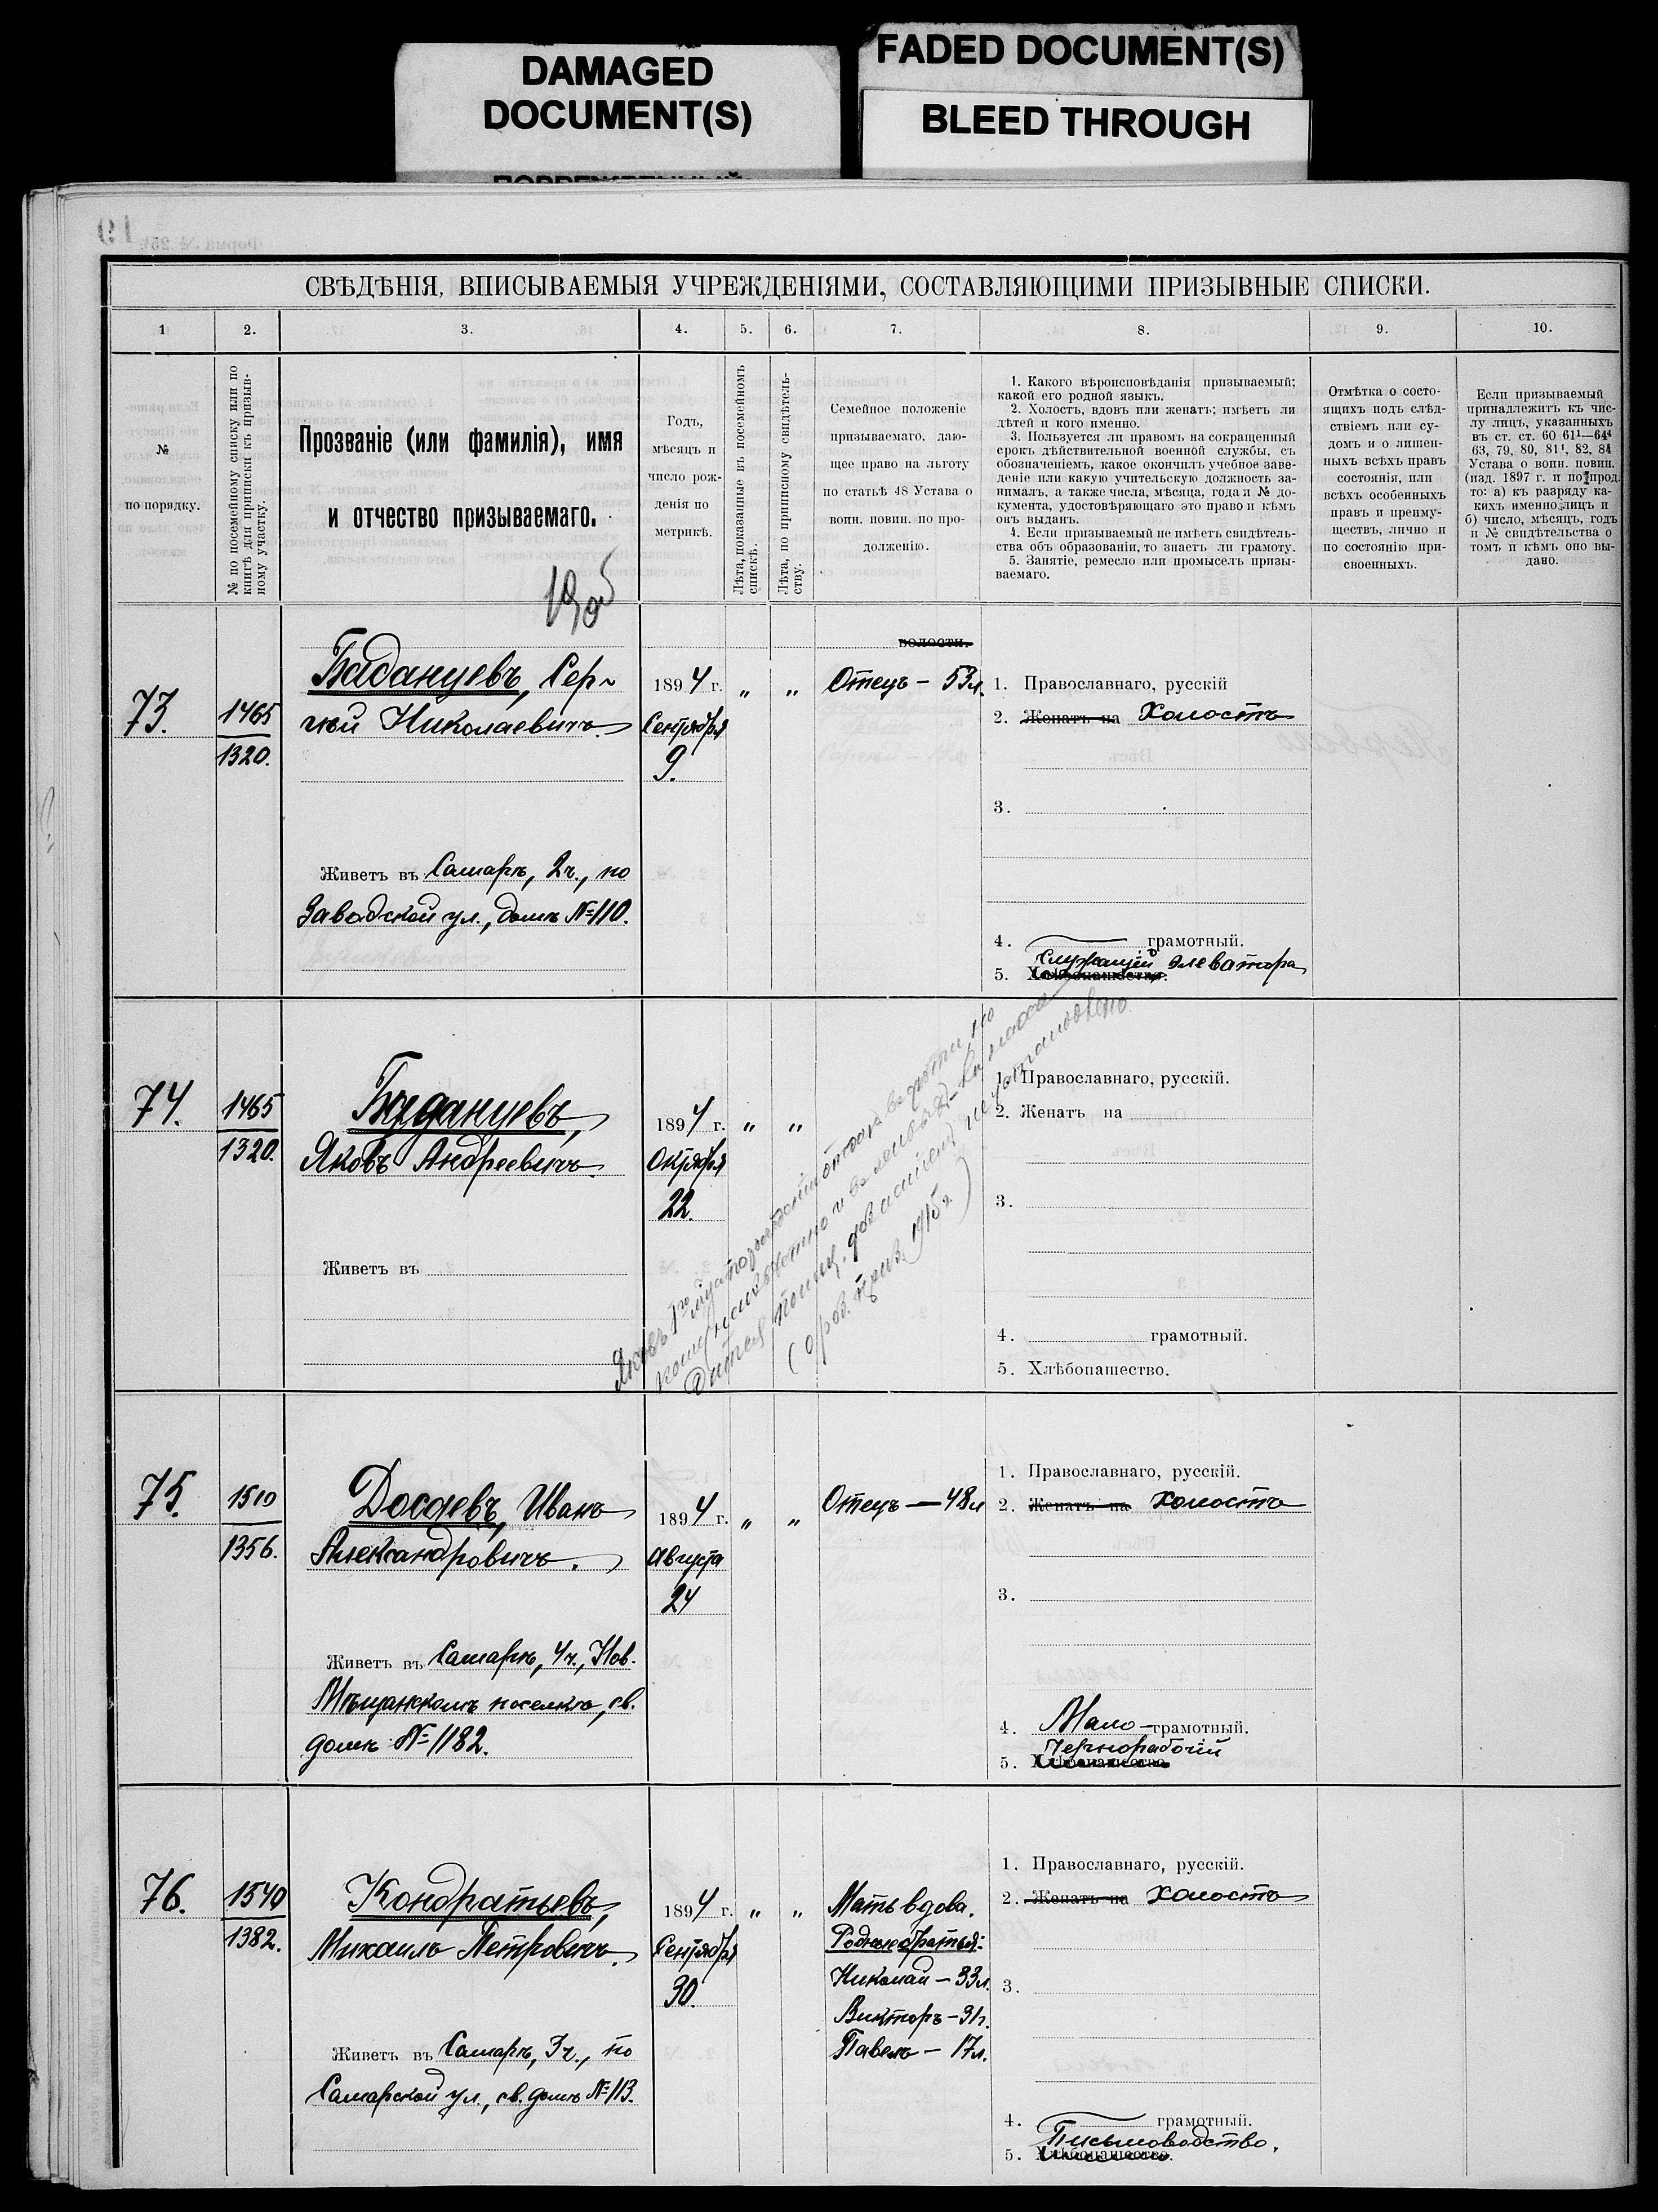 DAMAGED
DOCUMENT(S)
FADED DOCUMENT(S)
BLEED THROUGH
СВѢДѢНІЯ, ВПИСЫВАЕМЫЯ УЧРЕЖДЕНІЯМИ, СОСТАВЛЯЮЩИМИ ПРИЗЫВНЫЕ СПИСКИ.
1 2. 3. 4. 5. 6. 7. 8. 9. 10.
№
по порядку.
№ по посемейному списку или по
книгѣ для приписки къ призыв-
ному участку.
Прозваніе (или фамилія), имя
и отчество призываемаго.
Годъ,
мѣсяцъ и
число рож-
денія по
метрикѣ.
Лѣта, показанные въ посемейномъ
спискѣ.
Лѣта, по приписному свидѣтель-
ству.
Семейное положеніе
призываемаго, даю-
щее право на льготу
по статьѣ 48 Устава о
воин. повин. по про-
долженію.
1. Какого вѣроисповѣданія призываемый;
какой его родной языкъ.
2. Холостъ, вдовъ или женатъ; имѣетъ ли
дѣтей и кого именно.
3. Пользуется ли правомъ на сокращенный
срокъ дѣйствительной военной службы, съ
обозначеніемъ, какое окончилъ учебное заве-
деніе или какую учительскую должность за-
нималъ, а также числа, мѣсяца, года и № до-
кумента, удостовѣряющаго это право и кѣмъ
онъ выданъ.
4. Если призываемый не имѣетъ свидѣтель-
ства объ образованіи, то знаетъ ли грамоту.
5. Занятіе, ремесло или промыселъ призы-
ваемаго.
Отмѣтка о состо-
ящихъ подъ слѣд-
ствіемъ или су-
домъ и о лишен-
ныхъ всѣхъ правъ
состоянія, или
всѣхъ особенныхъ
правъ и преиму-
ществъ, лично и
по состоянію при-
своенныхъ.
Если призываемый
принадлежитъ къ чис-
лу лицъ, указанныхъ
въ ст. ст. 60 61¹—64⁴
63, 79, 80, 81¹, 82, 84
Устава о воин. повин.
(изд. 1897 г. и по прод.
то: а) къ разряду ка-
кихъ именно лицъ и
б) число, мѣсяцъ, годъ
и № свидѣтельства о
томъ и кѣмъ оно вы-
дано.
волости.
73.
1465
1320.
Баданцевъ, Сер-
гѣй Николаевичъ
1894 г. „ „
Сентября
9.
Отецъ – 53 л.
1. Православнаго, русскій
2. Женатъ на Холостъ
3.
Живетъ въ Самарѣ, 2 ч., по
Заводской ул., домъ № 110.
4. грамотный.
служащій элеватора
5. Хлѣбопашество.
74.
1465
1320.
Баданцевъ,
Яковъ Андреевичъ
1894 г. „ „
Октября
22.
1. Православнаго, русскій.
2. Женатъ на
3.
Живетъ въ
4. грамотный.
5. Хлѣбопашество.
75.
1510
1356.
Досаевъ, Иванъ
Александровичъ.
1894 г. „ „
Августа
24
Отецъ — 48 л
1. Православнаго, русскій.
2. Женатъ на Холостъ
3.
Живетъ въ Самарѣ, 4 ч., Нов.
Мѣщанскомъ поселкѣ, св.
домъ № 1182.
4. Мало-грамотный.
Чернорабочій
5. Хлѣбопашество
76.
1540
1382.
Кондратьевъ,
Михаилъ Петровичъ.
1894 г. „ „
Сентября
30.
Мать вдова.
Родные братья:
Николай – 33 л.
Викторъ – 31 г.
Павелъ – 17 л.
1. Православнаго, русскій.
2. Женатъ на Холостъ
3.
Живетъ въ Самарѣ, 3 ч., по
Самарской ул., св. домъ № 113.
4. грамотный.
Письмоводство.
5. Хлѣбопашество.